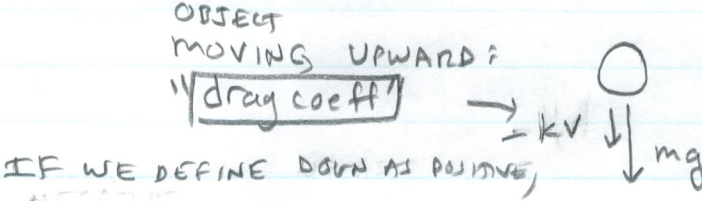 OBJECT
MOVING UPWARD:
"drag coeff"
-kv
mg
IF WE DEFINE DOWN AS POSITIVE,